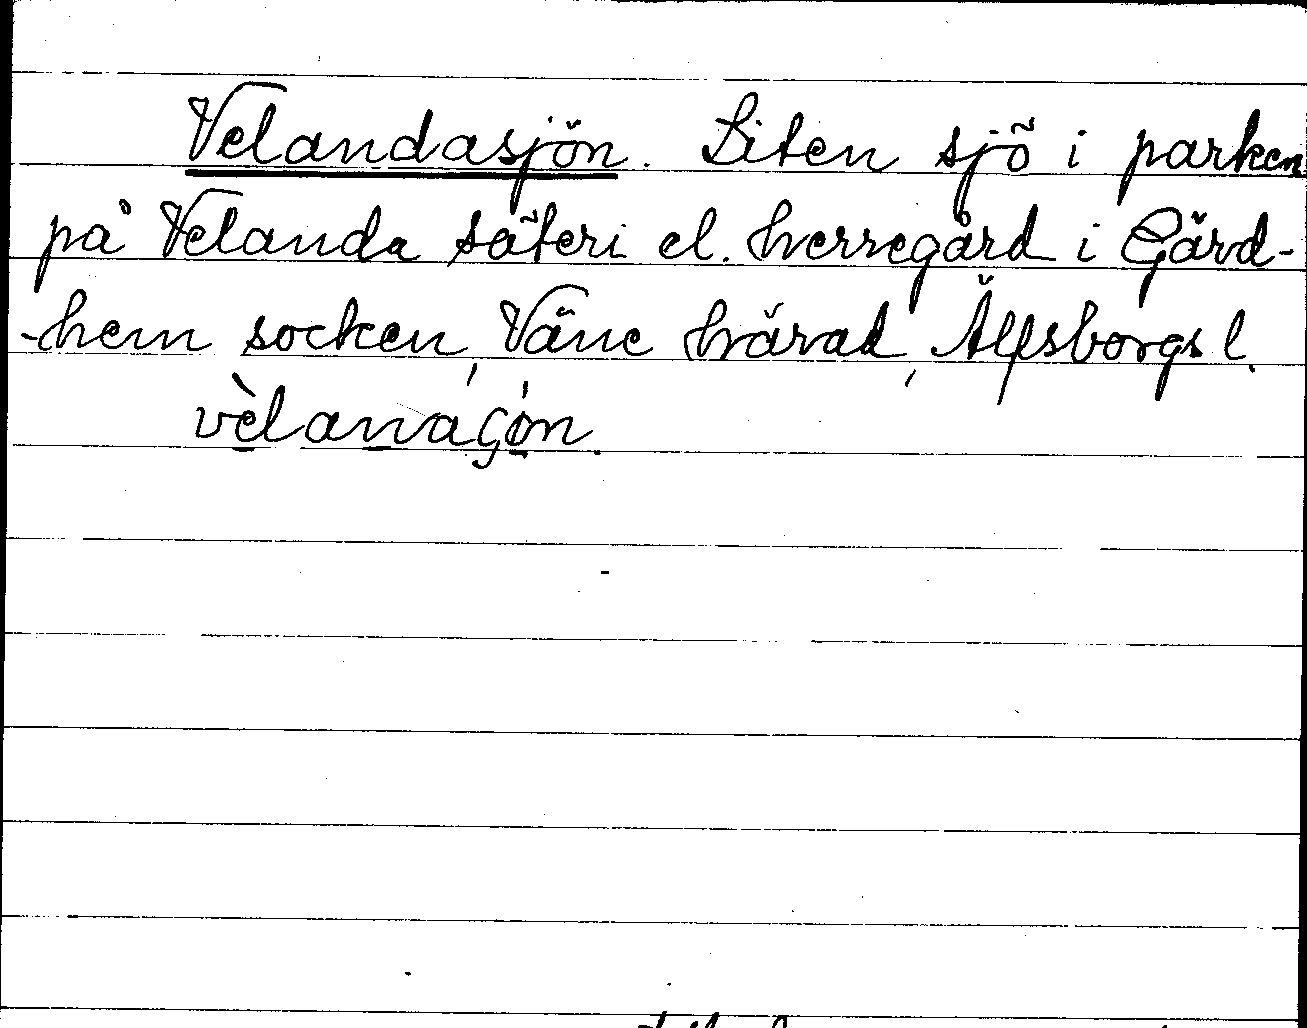 Velandasjön. Liten sjö i parken
på Velanda säteri el. herregård i Gärd-
-hem socken, Väne härad, Älfsborgs l.
vèlanaʃø̀n.